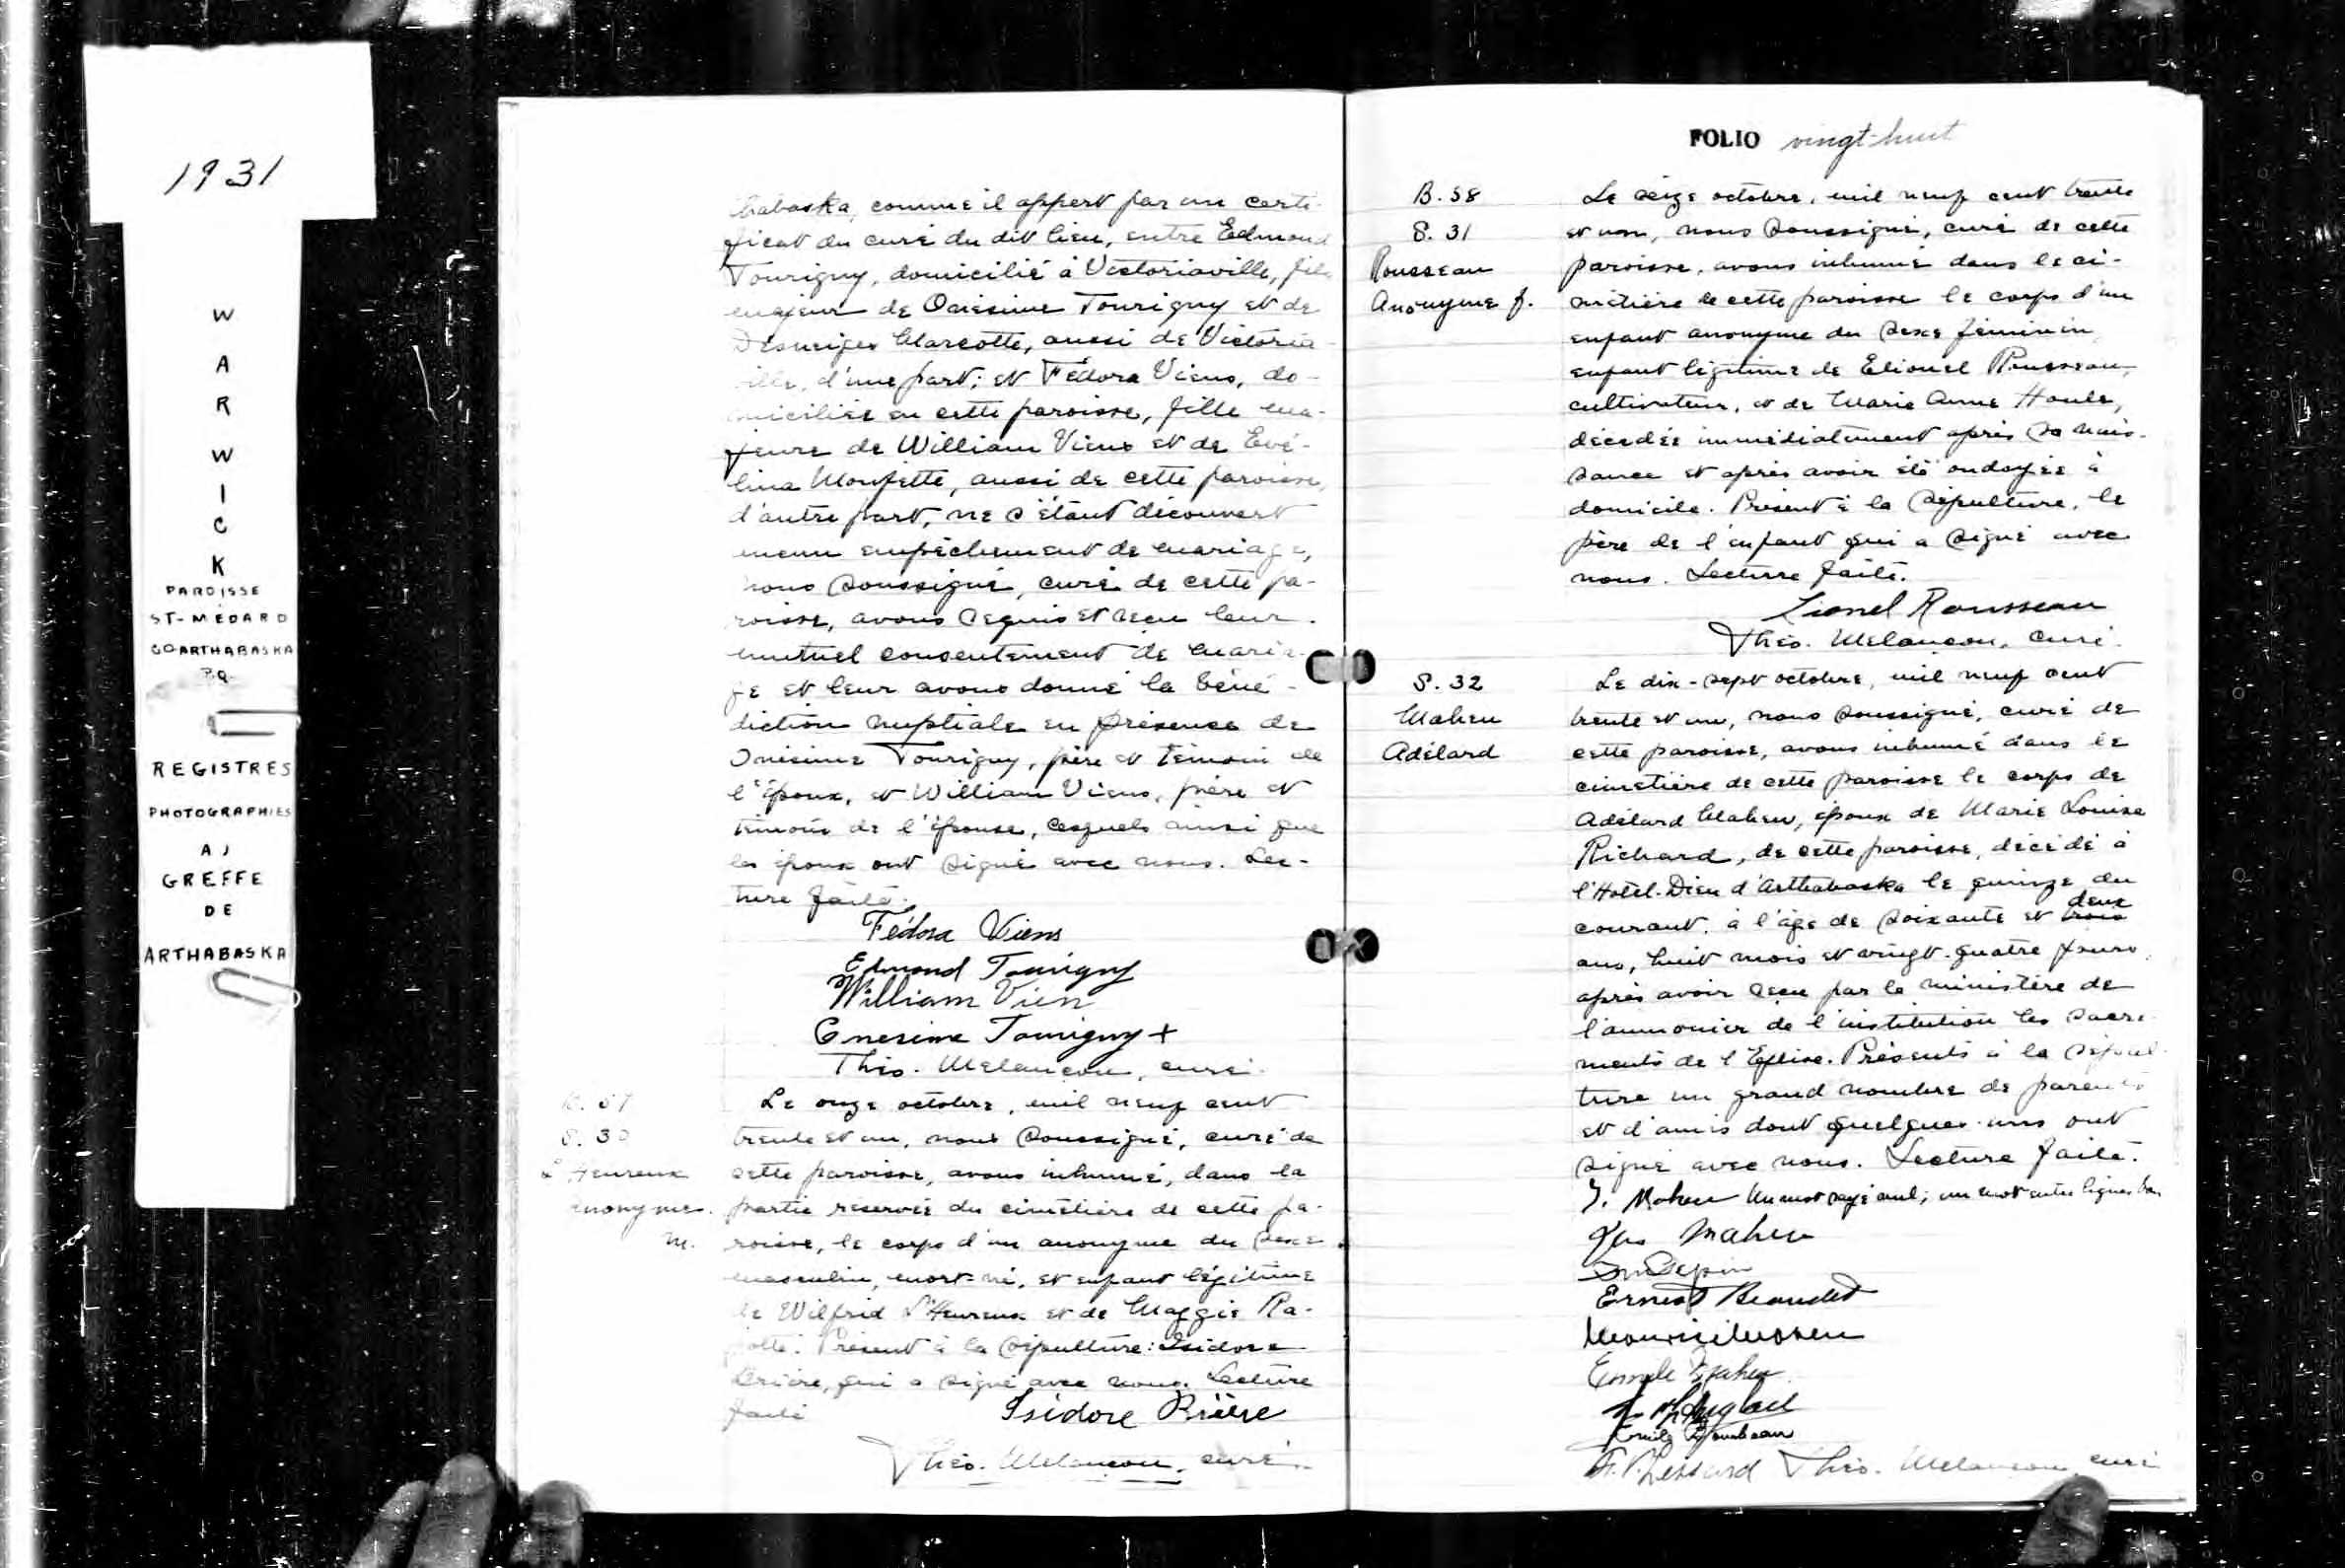 1931
W
A
R
W
I
C
K
PAROISSE
ST-MÉDARD
CO ARTHABASKA
P.Q.
REGISTRES
PHOTOGRAPHIES
AU
GREFFE
DE
ARTHABASKA
thabaska, comme il appert par un certi-
ficat du curé du dit lieu, entre Edmond
Tourigny, domicilié à Victoriaville, fils
majeur de Onésime Tourigny et de
Desneiges Marcotte, aussi de Victoria-
ville, d'une part; et Fédora Viens, do-
miciliée en cette paroisse, fille ma-
jeure de William Viens et de Evé-
lina Monfette, aussi de cette paroisse,
d'autre part, ne s'étant découvert
aucun empêchement de mariage,
nous soussigné, curé de cette pa-
roisse, avons requis et reçu leur
mutuel consentement de maria-
ge et leur avons donné la béné-
diction nuptiale en présence de
Onésime Tourigny, père et témoin de
l'époux, et William Viens, père et
témoin de l'épouse, lesquels ainsi que
les époux ont signé avec nous. Lec-
ture faite.
Fédora Viens
Edmond Tourigny
William Vien
Onesime Tourigny +
Théo. Melançon, curé.
B. 57
S. 30
L'Heureux
Anonyme
m.
Le onze octobre, mil neuf cent
trente et un, nous soussigné, curé de
cette paroisse, avons inhumé, dans la
partie réservée du cimetière de cette pa-
roisse, le corps d'un anonyme du sexe
masculin, mort-né, et enfant légitime
de Wilfrid L'Heureux et de Maggie Ra-
jotte. Présent à la sépulture: Isidore
Brière, qui a signé avec nous. Lecture
faite
Isidore Brière
Théo. Melançon, curé.
FOLIO vingt-huit
B. 58
S. 31
Rousseau
Anonyme f.
Le seize octobre, mil neuf cent trente
et un, nous soussigné, curé de cette
paroisse, avons inhumé dans le ci-
metière de cette paroisse le corps d'un
enfant anonyme du sexe féminin,
enfant légitime de Lionel Rousseau,
cultivateur, et de Marie Anne Houle,
décédée immédiatement après sa nais-
sance et après avoir été ondoyée à
domicile. Présent à la sépulture, le
père de l'enfant qui a signé avec
nous. Lecture faite.
Lionel Rousseau
Théo. Melançon, curé.
S. 32
Maheu
Adélard
Le dix-sept octobre, mil neuf cent
trente et un, nous soussigné, curé de
cette paroisse, avons inhumé dans le
cimetière de cette paroisse le corps de
Adélard Maheu, époux de Marie Louise
Richard, de cette paroisse, décédé à
l'Hotel-Dieu d'Arthabaska le quinze du
deux
courant, à l'âge de soixante et trois
ans, huit mois et vingt-quatre jours,
après avoir reçu par le ministère de
l'aumonier de l'institution les sacre-
ments de l'Eglise. Présents à la sépul-
ture un grand nombre de parents
et d'amis dont quelques-uns ont
signé avec nous. Lecture faite.
J. Maheu Un mot rayé nul; un mot entre lignes bon
Maheu
Ernest Beaudet
Emile Maheu
Lessard Théo. Melançon curé